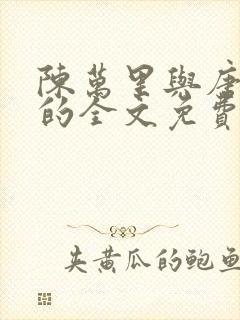 陳萬里與唐
的全文免費
夹黄瓜的鲍鱼